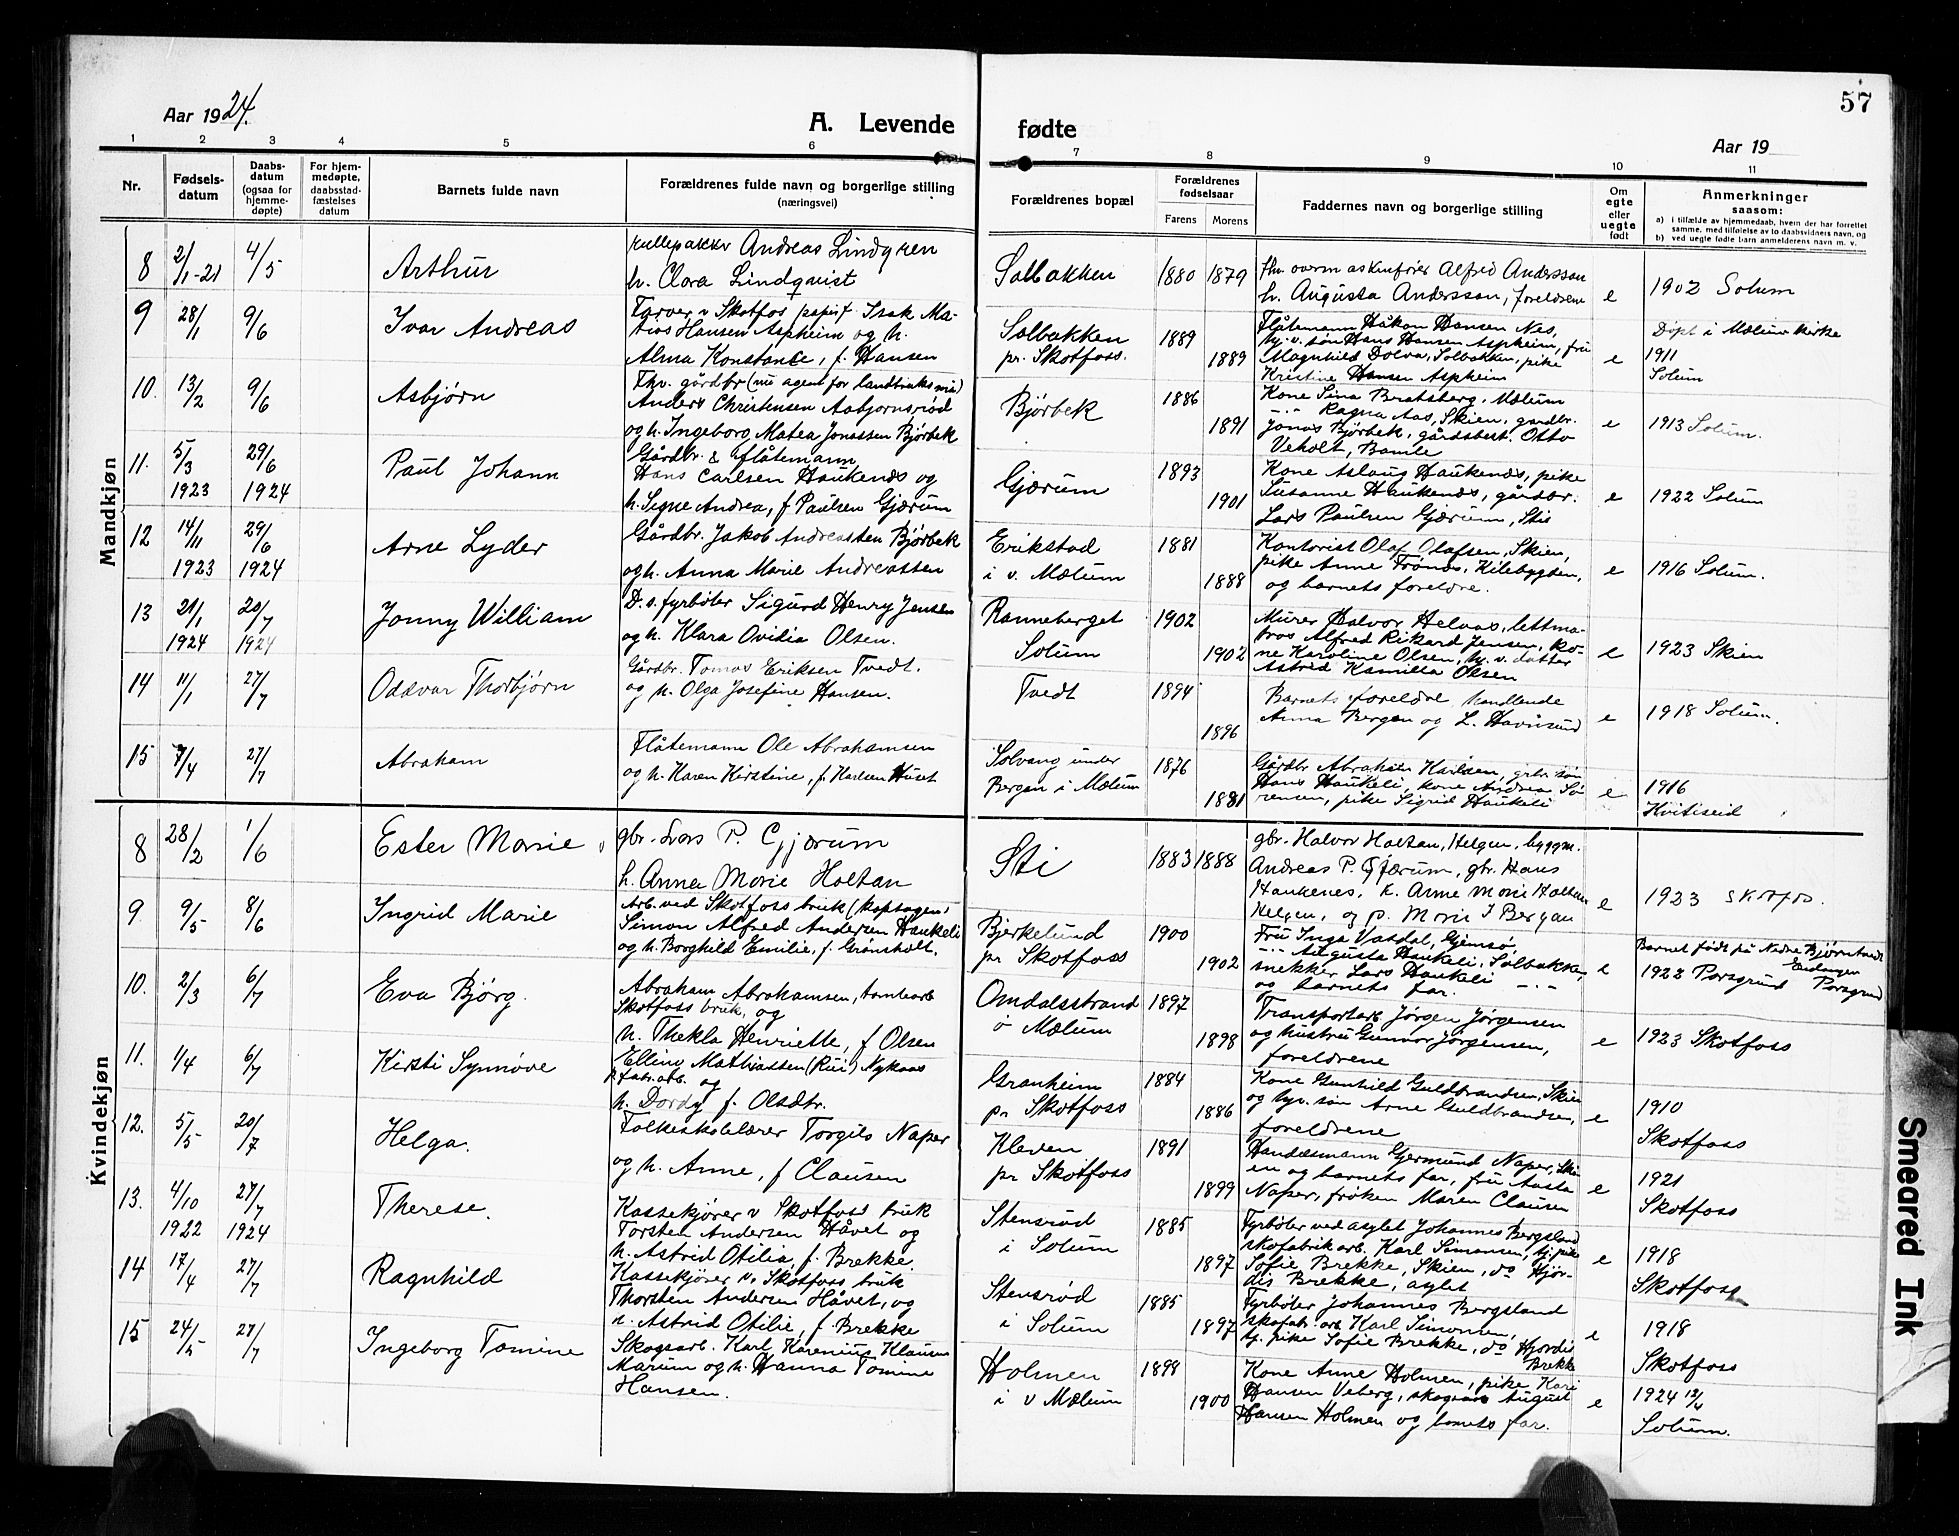 57
Aar 1924.
A. Levende
fødte
Aar 19
1 2 3 4 5 6 7 8 9 10 11
Nr.
Fødsels-
datum
Daabs-
datum
(ogsaa for
hjemme-
døpte)
For hjem-
medøpte,
daabsstad-
fæstelses
datum
Barnets fulde navn
Forældrenes fulde navn og borgerlige stilling
(næringsvei)
Forældrenes bopæl
Forældrenes
fødselsaar
Farens Morens
Faddernes navn og borgerlige stilling
Om
egte
eller
uegte
født
Anmerkninger
saasom:
a) i tilfælde av hjemmedaab, hvem der har forrettet
samme, med tilføielse av to daabsvidners navn, og
b) ved uegte fødte barn anmelderens navn m. v.
Mandkjøn
8 2/1-21 4/5 Arthur
rullepakker Andreas Lindgren
h. Clara Lindqvist
Solbakken 1880 1879
fhv. overmaskinfører Alfred Andersson
h. Augusta Andersson, foreldrene
e 1902 Solum
9 28/1 9/6 Ivar Andreas
Tørver v Skotfos papirf. Isak Ma-
tias Hansen Aspheim og h.
Alma Konstance, f. Hansen
Solbakken
pr. Skotfoss.
1889 1889
Flåtemann Håkon Hansen Nas,
hj. v. søn Hans Hansen Aspheim, fru
Magnhild Dolva, Solbakken, pike
Kristine Hansen Aspheim
e
Døpt i Mælum kirke
1911
Solum
10. 13/2 9/6 Asbjørn
Fhv. gårdbr (nu agent for landbruks mis)
Anders Christensen Aabjørnsrød
og h. Ingeborg Matea Jonassen Bjørbek
Bjørbek 1886 1891
Kone Sina Bratsberg, Mælum
-"- Ragna Aas, Skien, gardbr.
Jonas Bjørbek, gårdsbest. Otto
Veholt, Bamle
e 1913 Solum.
11. 5/3 1923 29/6 1924 Paul Johann
Gårdbr. & flåtemann
Hans Carlsen Haukenes og
h. Signe Andrea, f Paulsen Gjærum
Gjærum 1893 1901
Kone Aslaug Haukenes, pike
Susanne Haukenes, gårdbr.
Lars Paulsen Gjærum, Stie
e 1922 Solum
12 14/11 1923 29/6 1924 Arne Lyder
Gårdbr. Jakob Andreassen Bjørbek
og h. Anna Marie Andreassen
Erikstad
i v. Mælum
1881 1888
Kontorist Olaf Olafsen, Skien,
pike Anne Trønes, Kilebygden,
og barnets foreldre.
e 1916 Solum.
13 21/1 1924 20/7 1924 Jonny William
D.s. fyrbøter Sigurd Henry Jensen
og h. Klara Ovidia Olsen.
Ranneberget
Solum
1902 1902
Murer Halvor Helvas, lettma-
tros Alfred Rikard Jensen, ko-
ne Karoline Olsen, hj. v. datter
Astrid Kamilla Olsen
e 1923 Skien
14 11/1 27/7 Oddvar Thorbjørn
Gårdbr. Tomas Eriksen Tvedt.
og h. Olga Josefine Hansen.
Tvedt 1894 1896
Barnets foreldre, handlende
Anna Bergan og L. Havnsund
e 1918 Solum.
15 7/4 27/7 Abraham
Flåtemann Ole Abrahamsen
og h. Karen Kirstine, f. Karlsen Huset
Solvang under
Bergan i Mælum
1876 1881
Gårdbr Abraham Karlsen, grbr. søn
Hans Haukeli, kone Andrea Sø-
rensen, pike Sigrid Haukeli
e 1916
Kvitiseid
Kvindekjøn
8 28/2 1/6 Ester Marie
gbr. Lars P. Gjærum
h. Anna Marie Holtan
Sti 1883 1888
gbr. Halvor Holtan, Helgen, byggm.
Andreas P. Gjærum, gbr. Hans
Haukenes, k. Anne Marie Holtan
Helgen, og p. Marie J Bergan
e 1923 Skotfos.
9 9/5 8/6 Ingrid Marie
Arb. ved Skotfoss bruk (kapsagen)
Simon Alfred Andersen Haukeli
og h. Borghild Emilie, f. Grønsholt.
Bjerkelund
pr Skotfoss
1900 1902
Fru Inga Vatdal, Gjemsø
-"- Augusta Haukeli, Solbakken,
snekker Lars Haukeli -"-
og barnets far.
e
Barnet født på Nedre Bjørntvedt
Eidanger
1922 Porsgrund Porsgrund
10. 2/3 6/7 Eva Bjørg.
Abraham Abrahamsen, tomtearb
Skotfoss bruk, og
h. Thekla Henriette, f Olsen
Omdalsstrand
ø Mælum
1897 1898
Transportarb Jørgen Jørgensen
og hustru Gunvor Jørgensen,
foreldrene
e 1923 Skotfoss
11. 1/4 6/7 Kirsti Synnøve
Elling Mathiassen (Rui) Nykaas
p. fabr. arb. og
h. Dordy f. Olsdtr.
Granheim
pr Skotfoss
1884 1886
Kone Gunhild Guldbrandsen, Skien
og hjv. søn Arne Guldbrandsen,
foreldrene
e 1910
Skotfoss
12. 5/5 20/7 Helga.
Folkeskolelærer Torgils Naper
og h. Anne, f Clausen
Kleven
pr Skotfoss
1891 1899
Handelsmann Gjermund Naper, Ski-
en og barnets far, fru Aasta
Naper, frøken Maren Clausen
e 1921
Skotfoss
13. 4/10 1922 27/7 1924 Therese.
Kassekjører v Skotfoss bruk
Torsten Andersen Håvet og
h. Astrid Otilia, f. Brekke
Stensrød
i Solum
1885 1897
Fyrbøter ved asylet Johannes Bergsland
skofabrik arb. Karl Simonsen, tj. pike
Sofie Brekke, Skien, do Hjør-
dis Brekke, asylet
e 1918
Skotfoss
14 17/4 27/7 Ragnhild
Kassekjører v. Skotfoss bruk
Thorsten Andersen Håvet, og
h. Astrid Otilie, f. Brekke
Stensrød
i Solum
1885 1897
Fyrbøter Johannes Bergsland
skofabr. arb Karl Simonsen,
tj. pike Sofie Brekke, do Hjordis
Brekke
e 1918
Skotfoss
15 24/5 27/7 Ingeborg Tomine
Skogsarb. Karl Karenius Klausen
Marum og h. Hanna Tomine
Hansen.
Holmen
i v Mælum
1898 1900
Kone Anne Holmen, pike Kari
Hansen Veberg, skogsarb August
Hansen Holmen og barnets far.
e 1924 12/4
Solum.
Smeared Ink